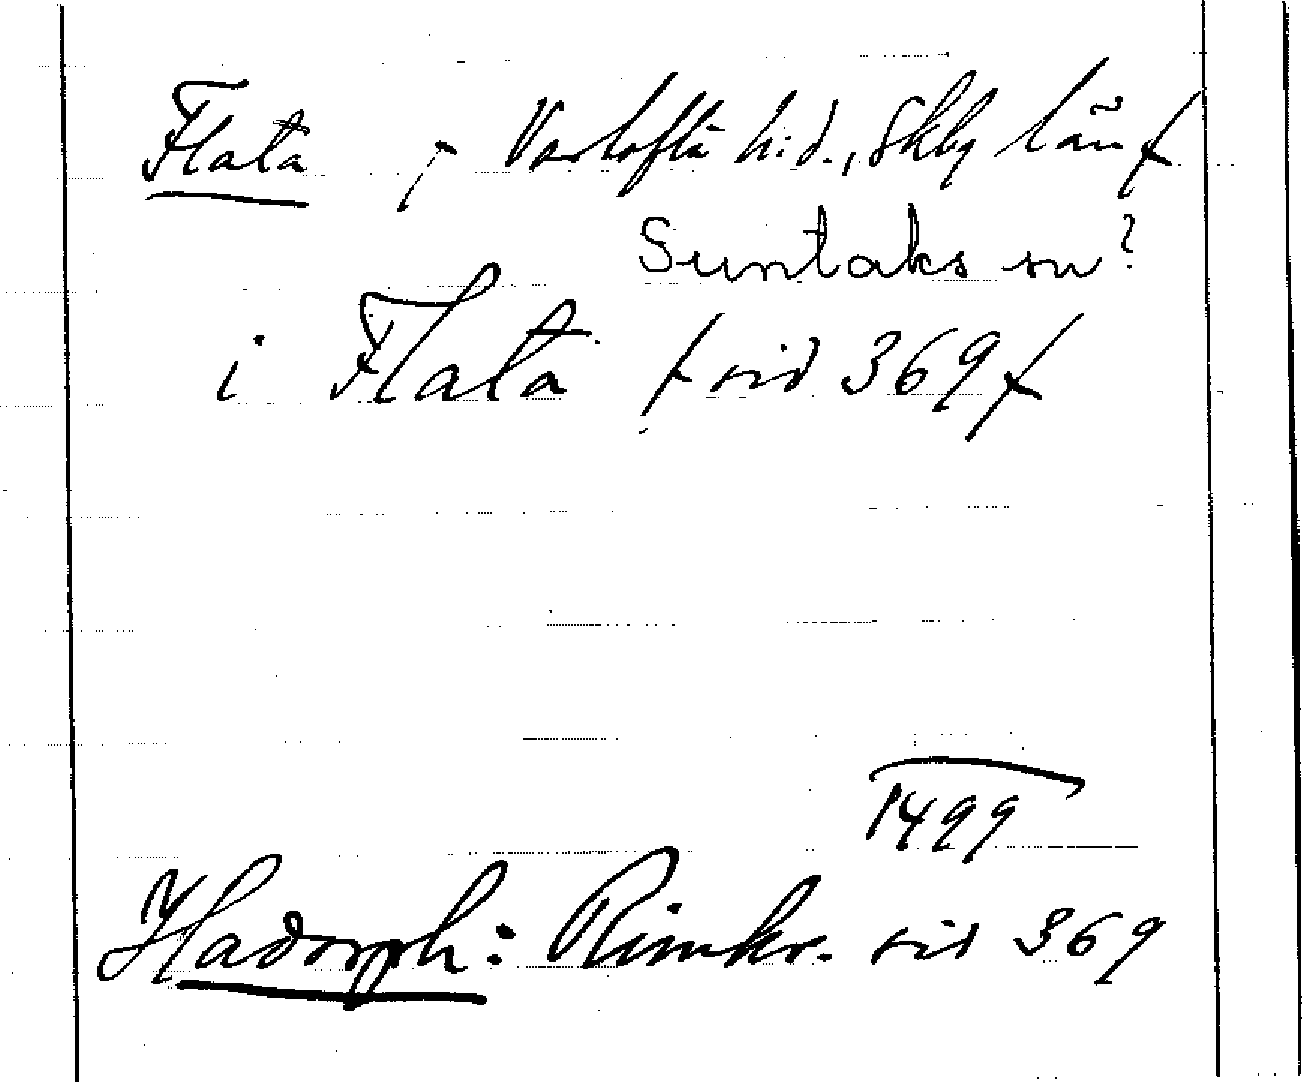 Flata /- Vartofta h:d., Skbg län /
Suntaks sn ?
i Flata / sid 369 /
1499
Hadorph: Rimkr. sid 369